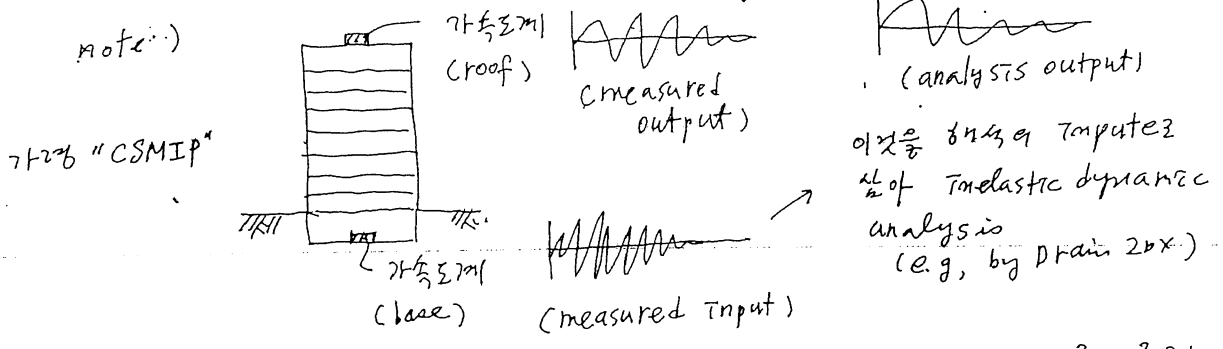 note:)
가령 "CSMIP"
가속도계
(roof)
(measured
output)
(analysis output)
이것을 해석의 input으로
삼아 inelastic dynamic
analysis
(e.g, by Drain 2DX)
가속도계
(base)
(measured input)